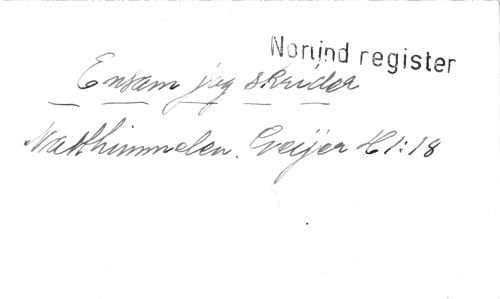 Norlind register
Ensam jag skrider
Natthimmelen. Geijer H 1:18